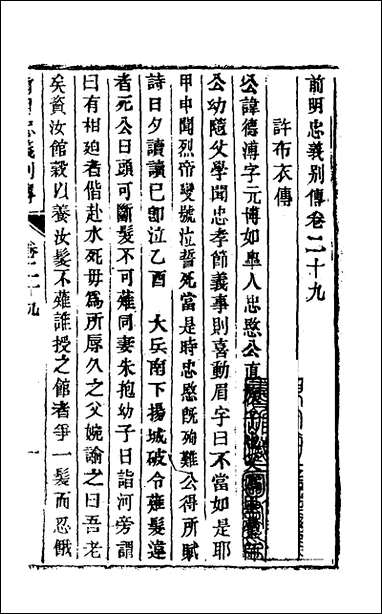 前明忠義別傳卷二十九
許布衣傳
公諱德溥字元博如臯人忠愍公直
公幼隨父學聞忠孝節義事則喜動眉宇曰不當如是耶
甲申聞烈帝變號泣誓死當是時忠愍既殉難公得所賦
詩日夕讀讀已卽泣乙酉 大兵南下揚城破令薙髮違
者死公曰頭可斷髮不可薙同妻朱抱幼子日詣河旁謂
曰有相廹者偕赴水死毋爲所辱久之父婉諭之曰吾老
矣資汝館穀以養汝髮不薙誰授之館者爭一髮而忍餓
卷二十九
一